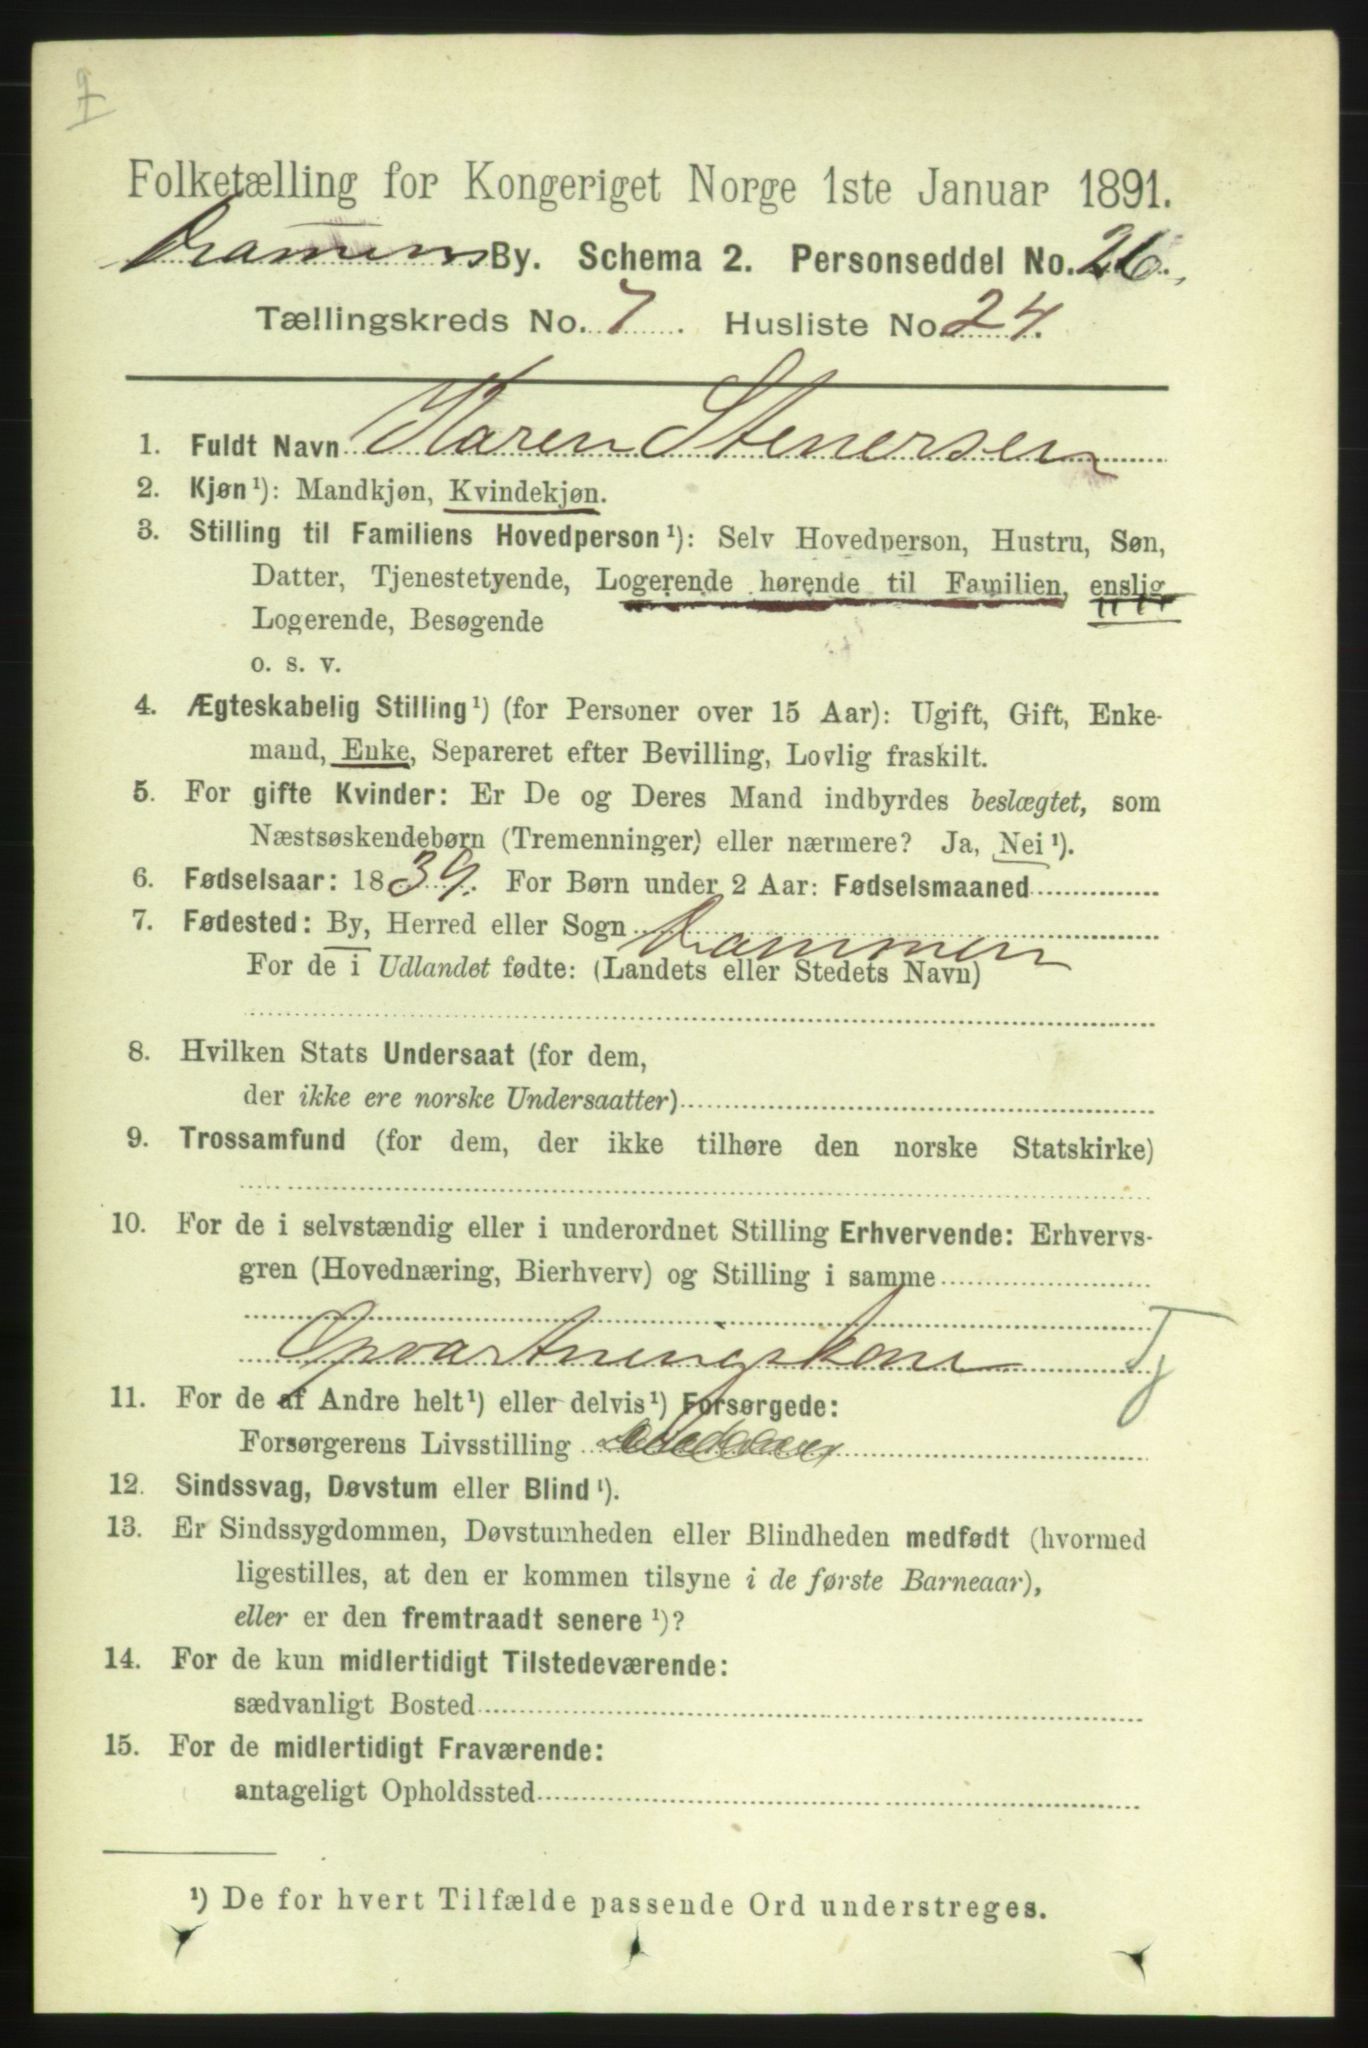 Folketælling for Kongeriget Norge 1ste Januar 1891.
Drammens By. Schema 2. Personseddel No. 26.
Tællingskreds No. 7. Husliste No. 24.
1. Fuldt Navn Karen Stenersen
2. Kjøn¹): Mandkjøn, Kvindekjøn.
3. Stilling til Familiens Hovedperson¹): Selv Hovedperson, Hustru, Søn,
Datter, Tjenestetyende, Logerende hørende til Familien, enslig
Logerende, Besøgende
o. s. v.
4. Ægteskabelig Stilling¹) (for Personer over 15 Aar): Ugift, Gift, Enke-
mand, Enke, Separeret efter Bevilling, Lovlig fraskilt.
5. For gifte Kvinder: Er De og Deres Mand indbyrdes beslægtet, som
Næstsøskendebørn (Tremenninger) eller nærmere? Ja, Nei¹).
6. Fødselsaar: 1839. For Børn under 2 Aar: Fødselsmaaned
7. Fødested: By, Herred eller Sogn Drammen
For de i Udlandet fødte: (Landets eller Stedets Navn)
8. Hvilken Stats Undersaat (for dem,
der ikke ere norske Undersaatter)
9. Trossamfund (for dem, der ikke tilhøre den norske Statskirke)
10. For de i selvstændig eller i underordnet Stilling Erhvervende: Erhvervs-
gren (Hovednæring, Bierhverv) og Stilling i samme
Opvartningskone Tj
11. For de af Andre helt¹) eller delvis¹) Forsørgede:
Forsørgerens Livsstilling
12. Sindssvag, Døvstum eller Blind¹).
13. Er Sindssygdommen, Døvstumheden eller Blindheden medfødt (hvormed
ligestilles, at den er kommen tilsyne i de første Barneaar),
eller er den fremtraadt senere¹)?
14. For de kun midlertidigt Tilstedeværende:
sædvanligt Bosted
15. For de midlertidigt Fraværende:
antageligt Opholdssted
¹) De for hvert Tilfælde passende Ord understreges.